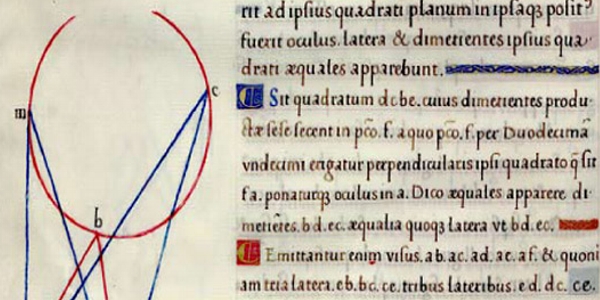 m
c
b
rit ad ipsius quadrati planum in ipsaqз posit⁹
fuerit oculus. latera & dimetientes ipsius qua
drati æquales apparebunt.
Sit quadratum dcbe. cuius dimetientes produ-
ctæ sese secent in pco. f. a quo pco. f. per Duodecimā
vndecimi erigatur perpendicularis ipsi quadrato q̄ sit
f a. ponaturqз oculus in a. Dico æquales apparere di-
metiētes. b d. ec. æqualia quoqз latera vt bd. ec.
Emittantur enim visus. a b. a c. a d. a e. a f. & quoni
am tria latera. e b. b c. c e. tribus lateribus. e d. d c. c e.